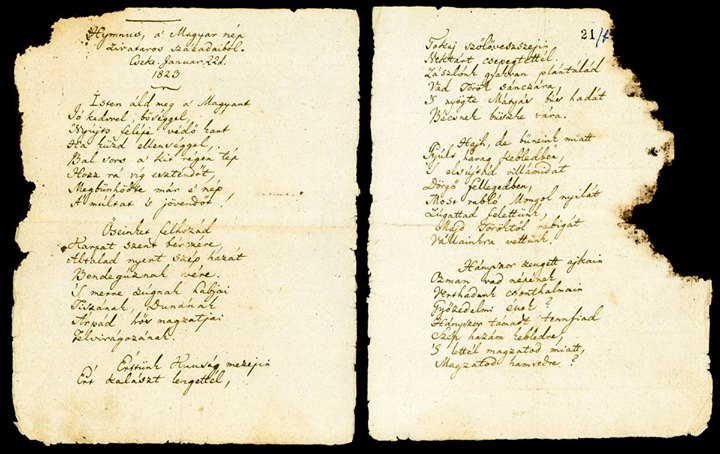 Hymnus, a' Magyar nép
zivataros századaiból.
Cseke. Januar. 22d.
1823
Isten áld meg a' Magyart
Jó kedvvel, bőséggel,
Nyújts feléje védő kart
Ha küzd ellenséggel,
Bal sors a' kit régen tép
Hozz rá víg esztendőt,
Megbűnhödte már e' nép
A' múltat 's jövendőt!
Őseinket felhozád
Kárpát szent bérczére,
Általad nyert szép hazát
Bendegúznak vére.
'S merre zúgnak habjai
Tiszának, Dunának
Árpád hős magzatjai
Felvirágozának.
Értünk Kunság mezejin
Ért kalászt lengettél,
21/
Tokaj szőlővesszejin
Nektárt csepegtettél.
Zászlónk gyakran plántálád
Vad Török sánczára,
'S nyögte Mátyás bús hadát
Bécsnek büszke vára.
Hajh, de bűneink miatt
Gyúlt harag kebledben,
'S elsújtád villámidat
Dörgő fellegedben,
Most rabló Mongol nyilát
Zúgattad felettünk,
Majd Töröktől rabigát
Vállainkra vettünk.
Hányszor zengett ajkain
Ozman vad népének
Vert hadunk csonthalmain
Győzedelmi ének?
Hányszor támadt tennfiad
Szép hazám kebledre,
'S lettél magzatod miatt,
Magzatod hamvedre?